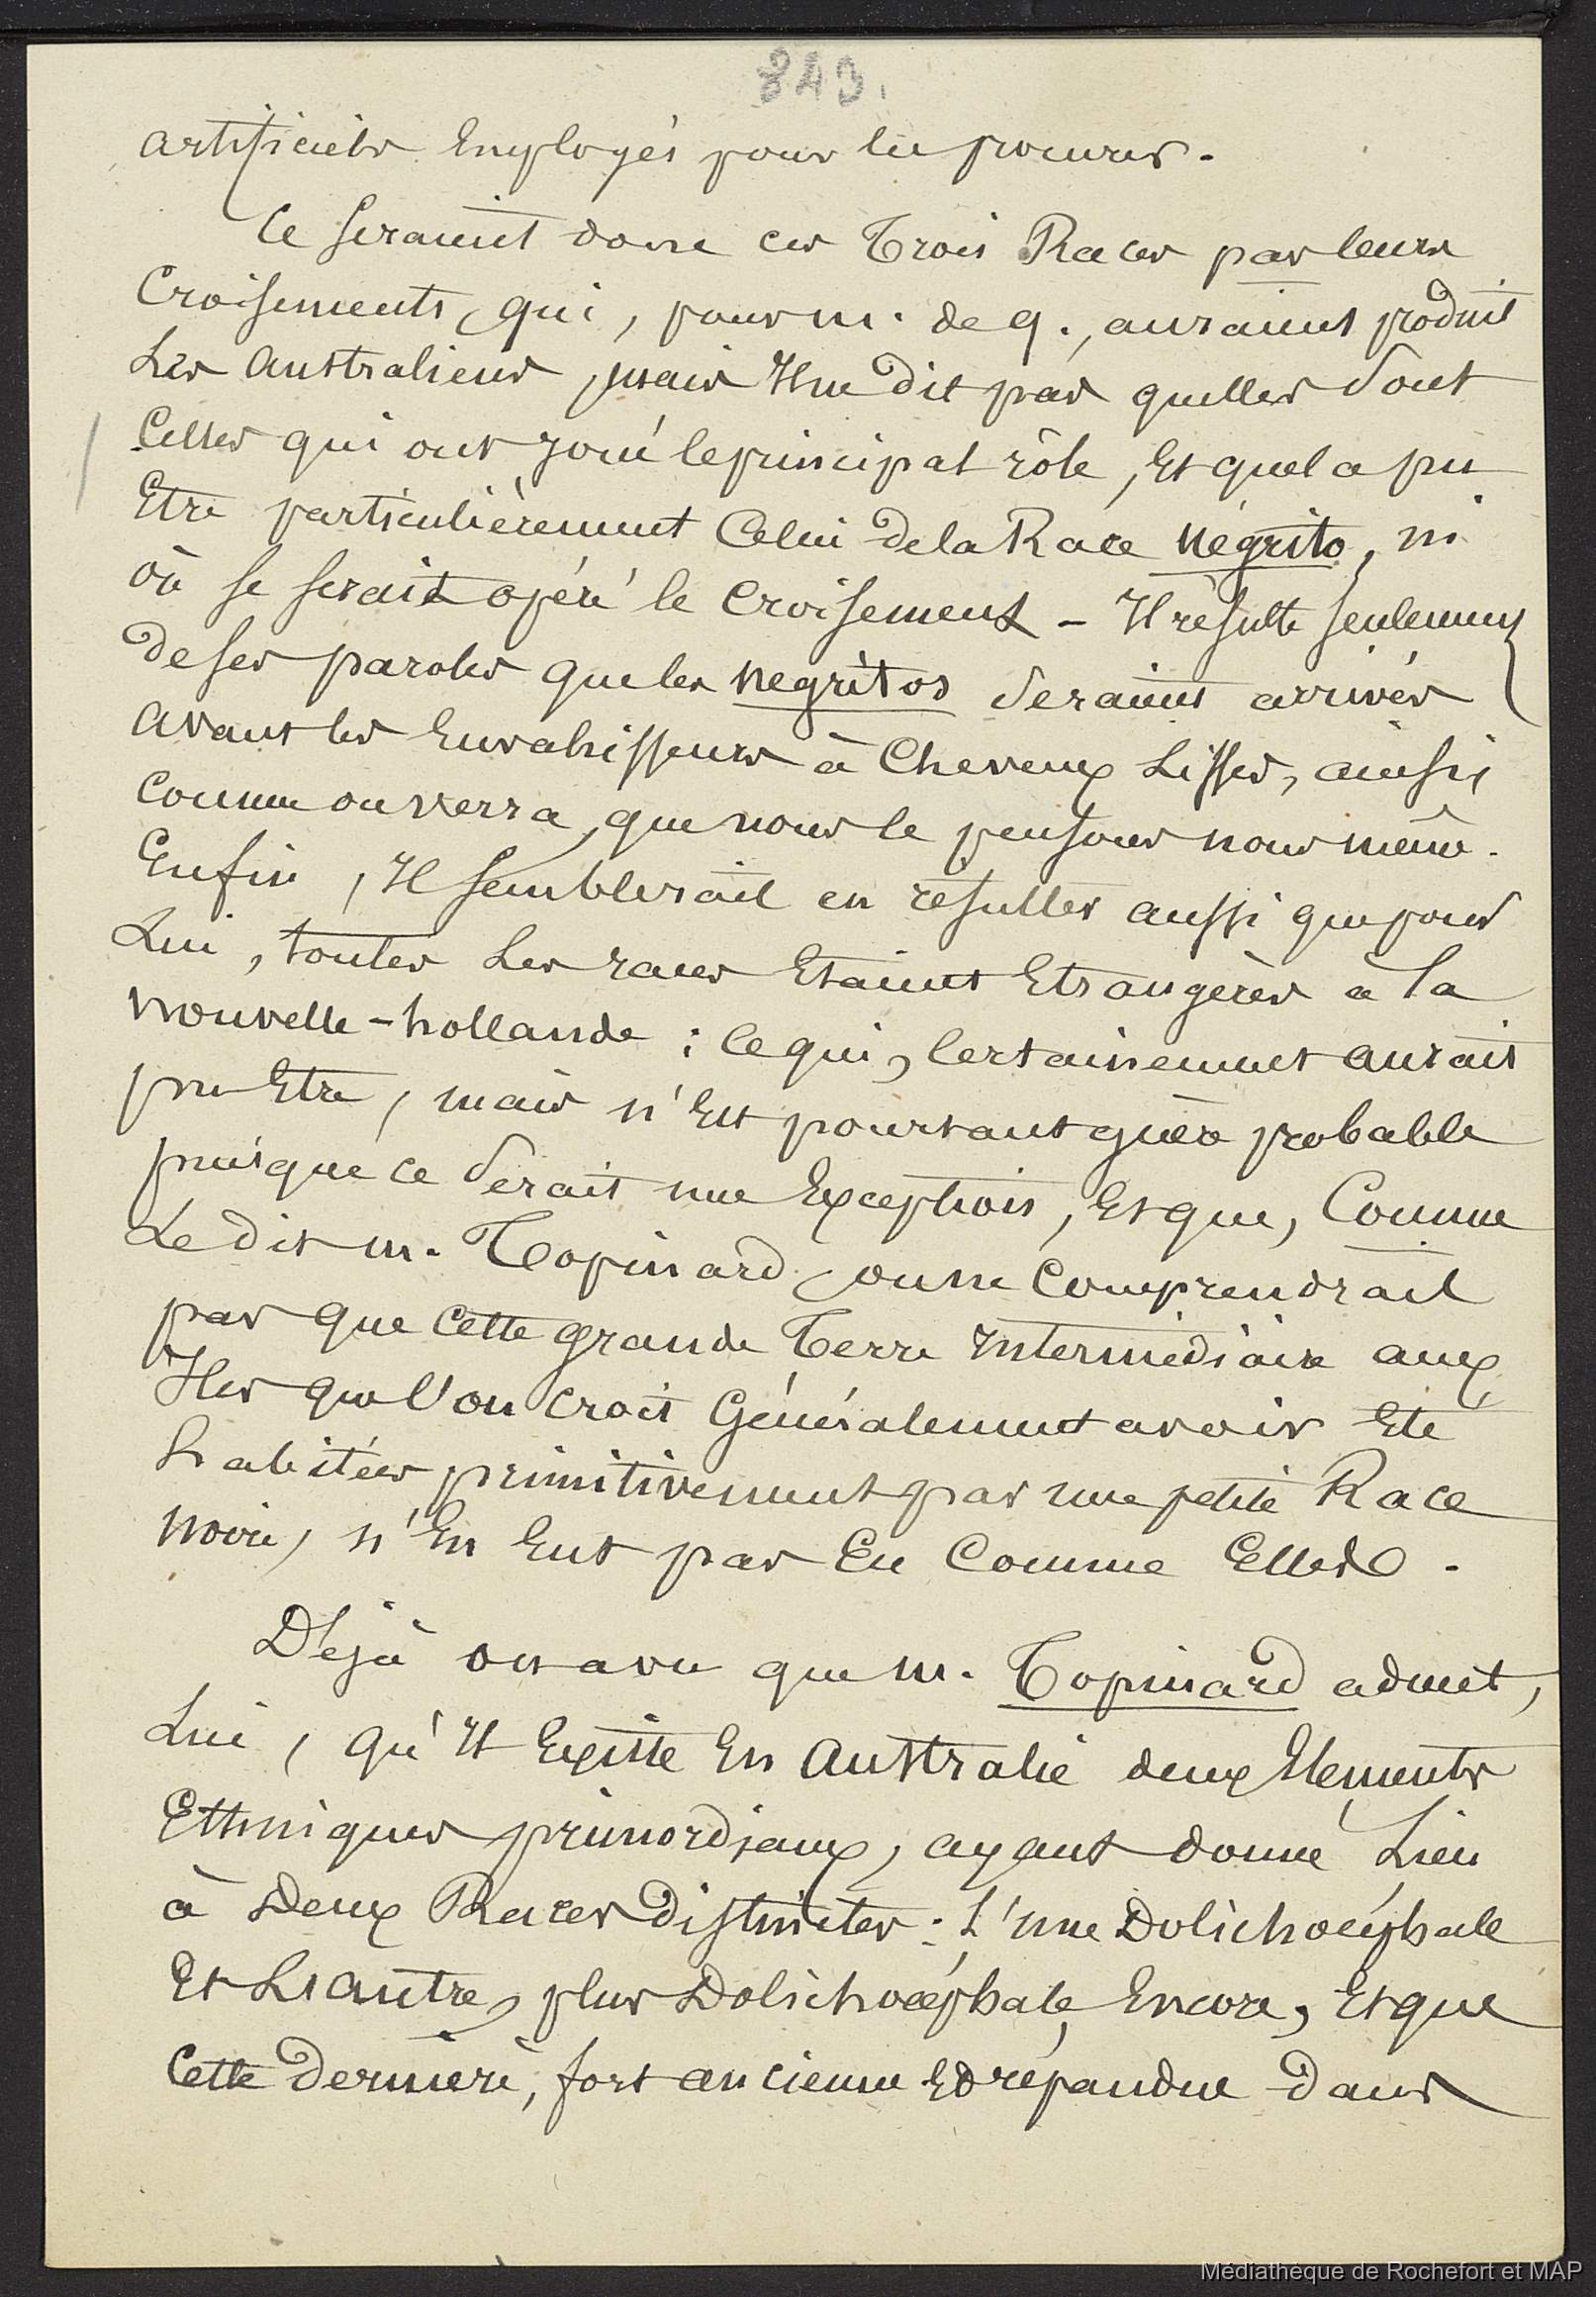 843.
artificiels Employés pour les procurer.
Ce seraient donc ces Trois Races par leurs
Croisements, qui, pour m. de q., auraient produit
Les Australiens, mais Il ne dit pas quelles sont
Celles qui ont joué le principal rôle, Et quel a pu
Etre particulièrement Celui de la Race Négrito, ni
où se serait opéré le Croisement – Il résulte seulement
de ses paroles que les Negritos seraient arrivés
avant les Envahisseurs à Cheveux Lisses, ainsi
comme on verra, que nous le pensons nous même.
Enfin, Il semblerait en résulter aussi que pour
Lui, toutes Les races Etaient Etrangères à la
Nouvelle-hollande : Ce qui, Certainement aurait
pu Etre, mais n'Est pourtant guère probable
puisque ce serait une Exception, Et que, Comme
Le dit m. Topinard, on ne Comprendrait
pas que cette grande Terre Intermédiaire aux
Iles que l'on croit Généralement avoir Eté
habitées primitivement par une petite Race
Noire, n'En Eut pas Eu Comme Elles.
Déjà on a vu que m. Topinard admet,
Lui, qu'Il Existe En Australie deux Elements
Ethniques primordiaux, ayant donné Lieu
à Deux Races Distinctes : L'une Dolichocéphale
Et L'autre, plus Dolichocéphale, Encore, Et que
Cette Dernière, fort ancienne Et répandue dans
Médiathèque de Rochefort et MAP